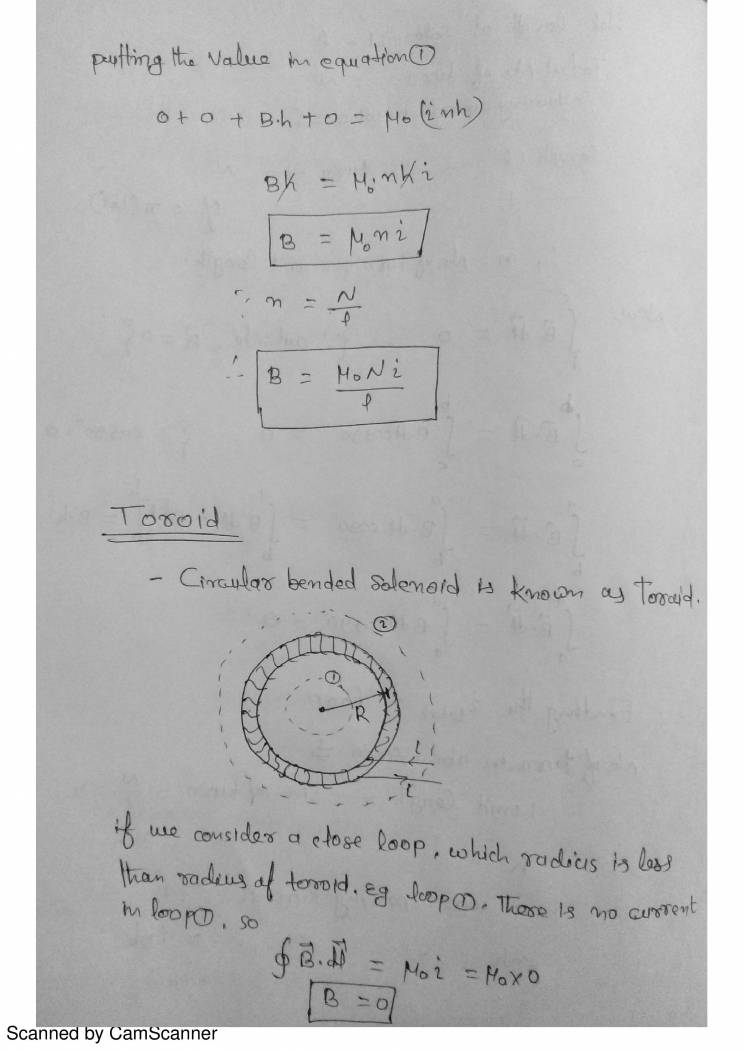 putting the value in equation ①
0 + 0 + B.h + 0 = μ₀ (i nh)
Bh = μ₀ n h i
B = μ₀ n i
∵ n = N/l
∴ B = μ₀ N i / l
Toroid
- Circular bended Solenoid is known as Toroid.
②
①
R
i
i
if we consider a close loop, which radius is less
than radius of toroid. Eg loop ①. There is no current
in loop ①, so
∮ B⃗.dl⃗ = μ₀ i = μ₀ x 0
B = 0
Scanned by CamScanner